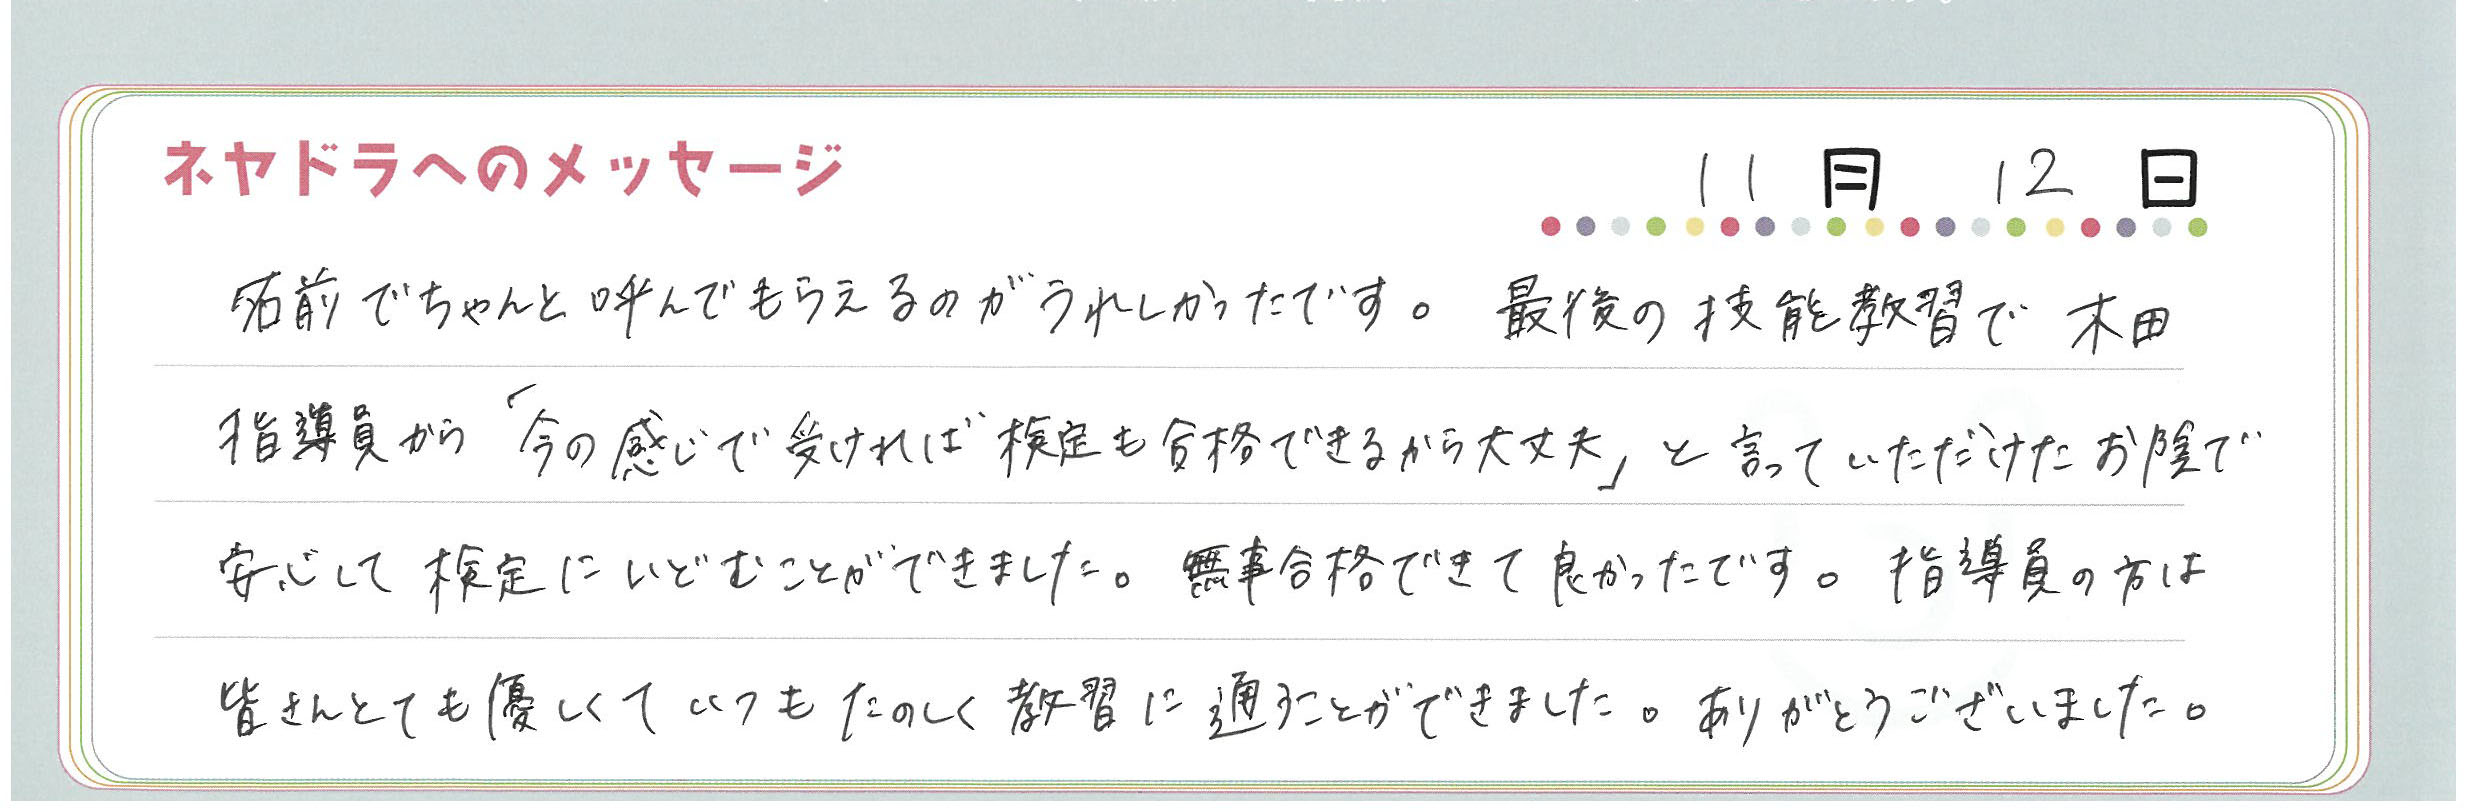 ネヤドラへのメッセージ
11月 12日
名前でちゃんと呼んでもらえるのがうれしかったです。最後の技能教習で木田
指導員から「今の感じで受ければ検定も合格できるから大丈夫」と言っていただけたお陰で
安心して検定にいどむことができました。無事合格できて良かったです。指導員の方は
皆さんとても優しくていつもたのしく教習に通うことができました。ありがとうございました。